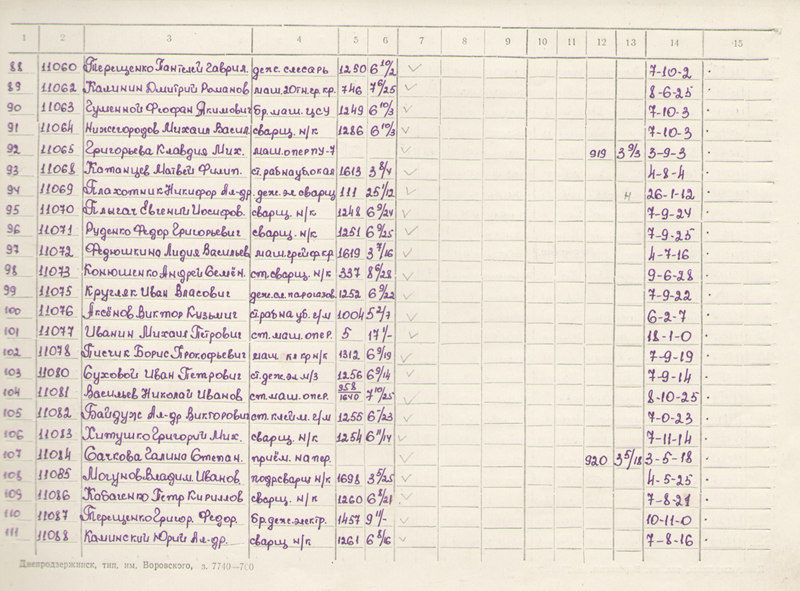 1 2 3 4 5 6 7 8 9 10 11 12 13 14 15
88 11060 Терещенко Пантелей Гаврил. деж. слесарь 1250 6 10/2 ✓ 7-10-2
89 11062 Калинин Дмитрий Романов маш. 20тн.гр.кр. 746 7 6/25 ✓ 8-6-25
90 11063 Гуменной Феофан Якимович бр.маш. ЦСУ 1249 6 10/3 ✓ 7-10-3
91 11064 Нижегородов Михаил Васил. сварщ. н/к 1286 6 10/3 ✓ 7-10-3
92 11065 Григорьева Клавдия Мих. маш.опер ПУ-7 919 3 9/3 3-9-3
93 11068 Катанцев Матвей Филип. 1613 3 8/4 ✓ 4-8-4
94 11069 Плахотник Никифор Ал-др. деж. эл сварщ 111 25 1/12 ✓ 26-1-12
95 11070 Плыгач Евгений Иосифов. сварщ. н/к 1248 6 9/24 ✓ 7-9-24
96 11071 Руденко Федор Григорьевич сварщ. н/к 1251 6 9/25 ✓ 7-9-25
97 11072 Федюшкина Лидия Васильев маш.грейф.кр 1619 3 7/16 ✓ 4-7-16
98 11073 Конюшенко Андрей Семён. ст. сварщ. н/к 337 8 6/28 ✓ 9-6-28
99 11075 Кругляк Иван Власович 1252 6 9/22 ✓ 7-9-22
100 11076 Аксёнов Виктор Кузьмич ст.раб на уб. г/м 1004 5 2/7 ✓ 6-2-7
101 11077 Иванин Михаил Петрович ст. маш. опер. 5 17 1/- ✓ 18-1-0
102 11078 Писчик Борис Прокофьевич маш. кл кр н/к 1312 6 9/19 ✓ 7-9-19
103 11080 Суховой Иван Петрович ст. деж. эл м/з 1256 6 9/14 ✓ 7-9-14
104 11081 Васильев Николай Иванов ст. маш. опер. 958 1640 7 10/25 ✓ 8-10-25
105 11082 Байдуж Ал-др Викторович ст. клейм. г/м 1255 6/23 ✓ 7-0-23
106 11083 Хитушко Григорий Мих. сварщ. н/к 1254 6 11/14 ✓ 7-11-14
107 11084 Сачкова Галина Степан. приём. на пер. 920 3 5/18 3-5-18
108 11085 Могунов Владим. Иванов подр сварщ н/к 1698 3 5/25 ✓ 4-5-25
109 11086 Кабаченко Петр Кириллов сварщ. н/к 1260 6 8/21 ✓ 7-8-21
110 11087 Терещенко Григор. Федор. бр. деж. электр. 1457 9 11/- ✓ 10-11-0
111 11088 Каминский Юрий Ал-др. сварщ н/к 1261 6 8/16 ✓ 7-8-16
Днепродзержинск, тип. им. Воровского, з. 7740—700